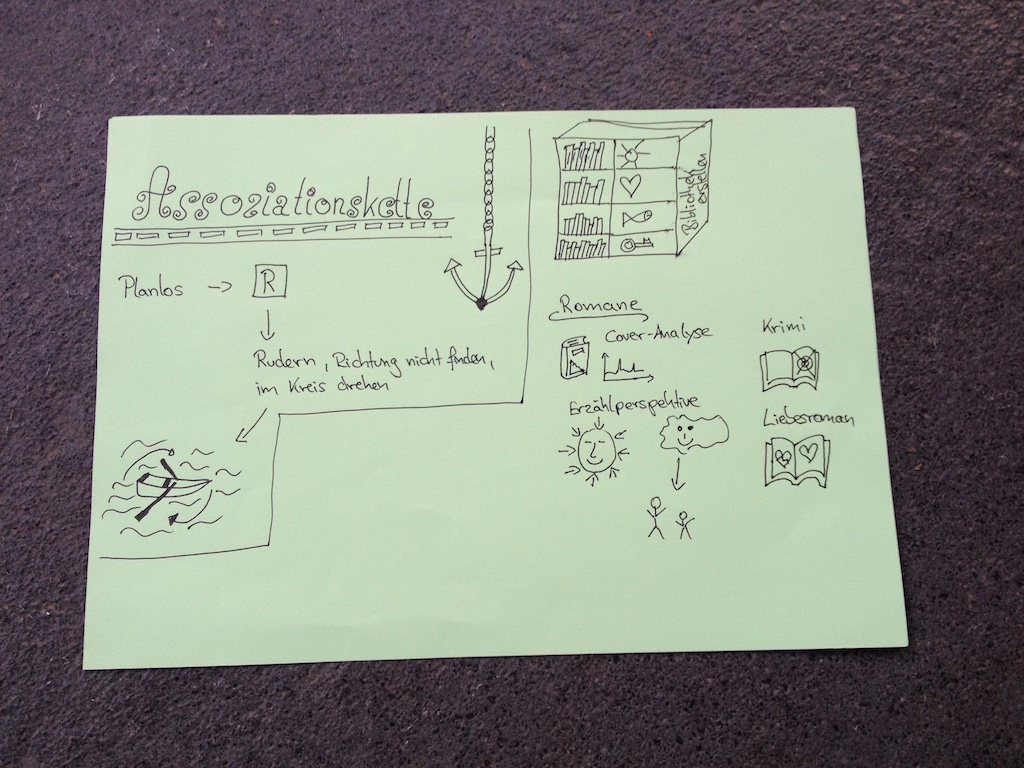 Assoziationskette
Planlos -> R
Rudern, Richtung nicht finden,
im Kreis drehen
Bibliothek
erstellen
Romane
Cover-Analyse
Erzählperspektive
Krimi
Liebesroman